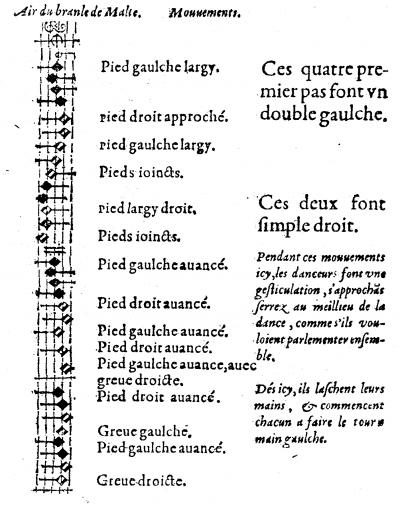 Air du branle de Malte. Mouuements.
Pied gaulche largy.
pied droit approché.
pied gaulche largy.
Pieds ioincts.
pied largy droit.
Pieds ioincts.
Pied gaulche auancé.
Pied droit auancé.
Pied gaulche auancé.
Pied droit auancé.
Pied gaulche auance, auec
greue droicte.
Pied droit auancé.
Greue gaulché.
Pied gaulche auancé.
Greue droicte.
Ces quatre pre-
mier pas font vn
double gaulche.
Ces deux font
ſimple droit.
Pendant ces mouuements
icy, les danceurs font vne
geſticulation, s'approchãs
ſerrez au meillieu de la
dance, comme s'ils vou-
loient parlementer enſem-
ble.
Dés icy, ils laſchent leurs
mains, & commencent
chacun a faire le tour a
main gaulche.